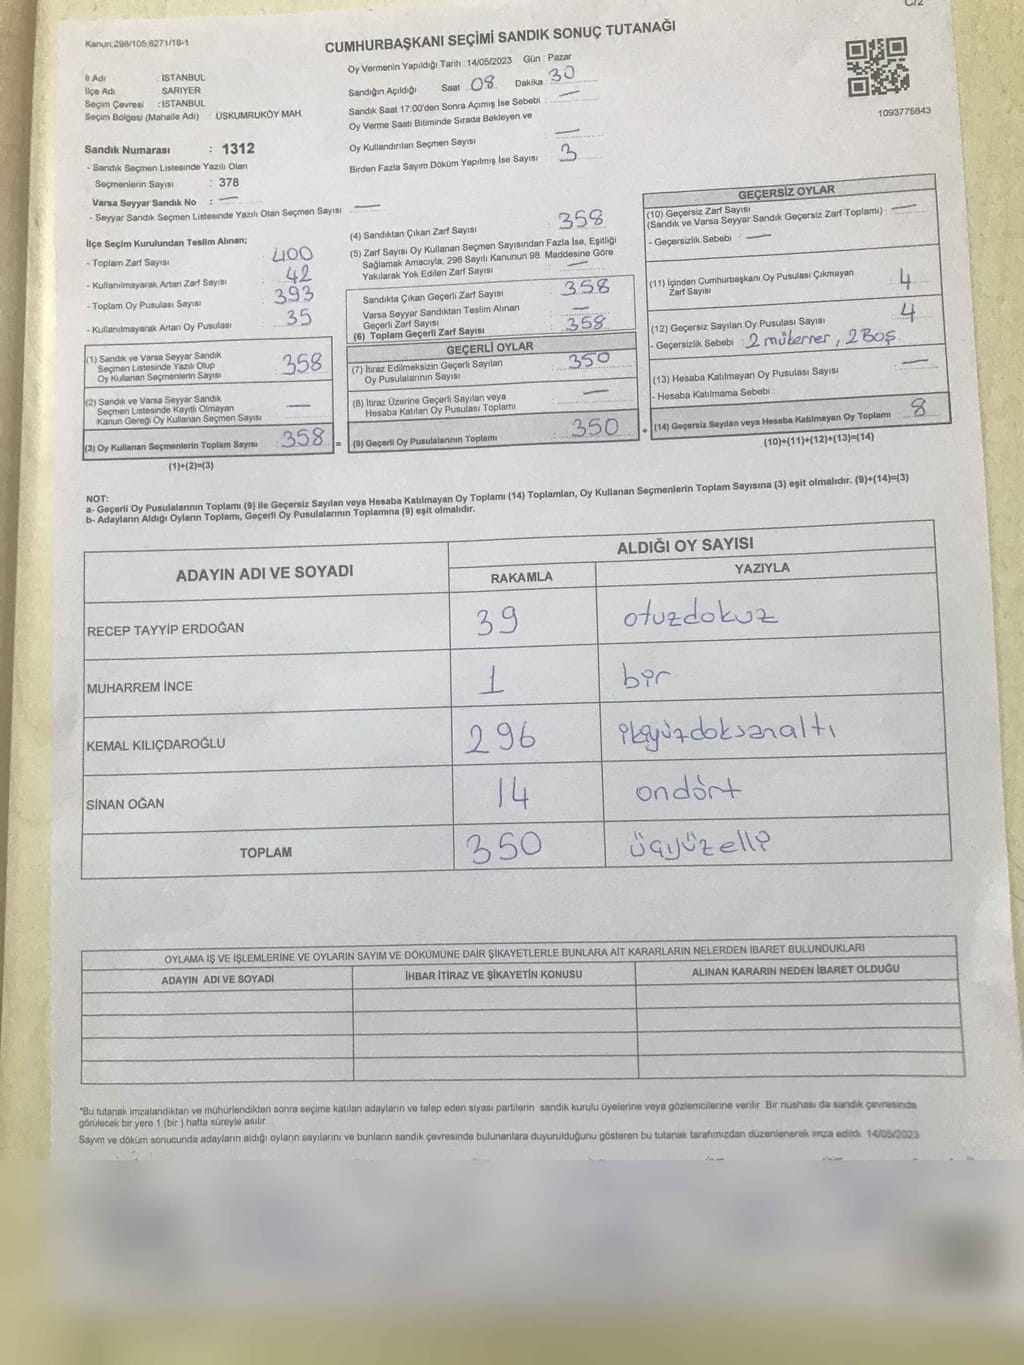 C/2
Kanun:298/105;6271/18-1
CUMHURBAŞKANI SEÇİMİ SANDIK SONUÇ TUTANAĞI
Oy Vermenin Yapıldığı Tarih :14/05/2023 Gün : Pazar
İl Adı : İSTANBUL
İlçe Adı SARIYER
Seçim Çevresi : İSTANBUL
Seçim Bölgesi (Mahalle Adı) USKUMRUKÖY MAH.
Sandığın Açıldığı Saat 08 Dakika 30
Sandık Saat 17:00'den Sonra Açımış İse Sebebi : —
Oy Verme Saati Bitiminde Sırada Bekleyen ve
Oy Kullandırılan Seçmen Sayısı —
Birden Fazla Sayım Döküm Yapılmış İse Sayısı 3
1093775843
Sandık Numarası : 1312
- Sandık Seçmen Listesinde Yazılı Olan
Seçmenlerin Sayısı : 378
Varsa Seyyar Sandık No : —
- Seyyar Sandık Seçmen Listesinde Yazılı Olan Seçmen Sayısı —
İlçe Seçim Kurulundan Teslim Alınan;
- Toplam Zarf Sayısı 400
- Kullanılmayarak Artan Zarf Sayısı 42
- Toplam Oy Pusulası Sayısı 393
- Kullanılmayarak Artan Oy Pusulası 35
(1) Sandık ve Varsa Seyyar Sandık
Seçmen Listesinde Yazılı Olup
Oy Kullanan Seçmenlerin Sayısı 358
(2) Sandık ve Varsa Seyyar Sandık
Seçmen Listesinde Kayıtlı Olmayan
Kanun Gereği Oy Kullanan Seçmen Sayısı —
(3) Oy Kullanan Seçmenlerin Toplam Sayısı 358 =
(1)+(2)=(3)
(4) Sandıktan Çıkan Zarf Sayısı 358
(5) Zarf Sayısı Oy Kullanan Seçmen Sayısından Fazla İse, Eşitliği
Sağlamak Amacıyla; 298 Sayılı Kanunun 98. Maddesine Göre
Yakılarak Yok Edilen Zarf Sayısı —
Sandıkta Çıkan Geçerli Zarf Sayısı 358
Varsa Seyyar Sandıktan Teslim Alınan
Geçerli Zarf Sayısı —
(6) Toplam Geçerli Zarf Sayısı 358
GEÇERLİ OYLAR
(7) İtiraz Edilmeksizin Geçerli Sayılan
Oy Pusulalarının Sayısı 350
(8) İtiraz Üzerine Geçerli Sayılan veya
Hesaba Katılan Oy Pusulası Toplamı —
(9) Geçerli Oy Pusulalarının Toplamı 350 +
GEÇERSİZ OYLAR
(10) Geçersiz Zarf Sayısı
(Sandık ve Varsa Seyyar Sandık Geçersiz Zarf Toplamı) : —
- Geçersizlik Sebebi : —
(11) İçinden Cumhurbaşkanı Oy Pusulası Çıkmayan
Zarf Sayısı 4
(12) Geçersiz Sayılan Oy Pusulası Sayısı 4
- Geçersizlik Sebebi : 2 mükerrer, 2 Boş.
(13) Hesaba Katılmayan Oy Pusulası Sayısı —
- Hesaba Katılmama Sebebi :
(14) Geçersiz Sayılan veya Hesaba Katılmayan Oy Toplamı 8
(10)+(11)+(12)+(13)=(14)
NOT:
a- Geçerli Oy Pusulalarının Toplamı (9) ile Geçersiz Sayılan veya Hesaba Katılmayan Oy Toplamı (14) Toplamları, Oy Kullanan Seçmenlerin Toplam Sayısına (3) eşit olmalıdır. (9)+(14)=(3)
b- Adayların Aldığı Oyların Toplamı, Geçerli Oy Pusulalarının Toplamına (9) eşit olmalıdır.
ADAYIN ADI VE SOYADI ALDIĞI OY SAYISI
RAKAMLA YAZIYLA
RECEP TAYYİP ERDOĞAN 39 otuzdokuz
MUHARREM İNCE 1 bir
KEMAL KILIÇDAROĞLU 296 ikiyüzdoksanaltı
SİNAN OĞAN 14 ondört
TOPLAM 350 üçyüzelli
OYLAMA İŞ VE İŞLEMLERİNE VE OYLARIN SAYIM VE DÖKÜMÜNE DAİR ŞİKAYETLERLE BUNLARA AİT KARARLARIN NELERDEN İBARET BULUNDUKLARI
ADAYIN ADI VE SOYADI İHBAR İTİRAZ VE ŞİKAYETİN KONUSU ALINAN KARARIN NEDEN İBARET OLDUĞU
*Bu tutanak imzalandıktan ve mühürlendikten sonra seçime katılan adayların ve talep eden siyasi partilerin sandık kurulu üyelerine veya gözlemcilerine verilir. Bir nüshası da sandık çevresinde
görülecek bir yere 1 (bir ) hafta süreyle asılır.
Sayım ve döküm sonucunda adayların aldığı oyların sayılarını ve bunların sandık çevresinde bulunanlara duyurulduğunu gösteren bu tutanak tarafımızdan düzenlenerek imza edildi. 14/05/2023